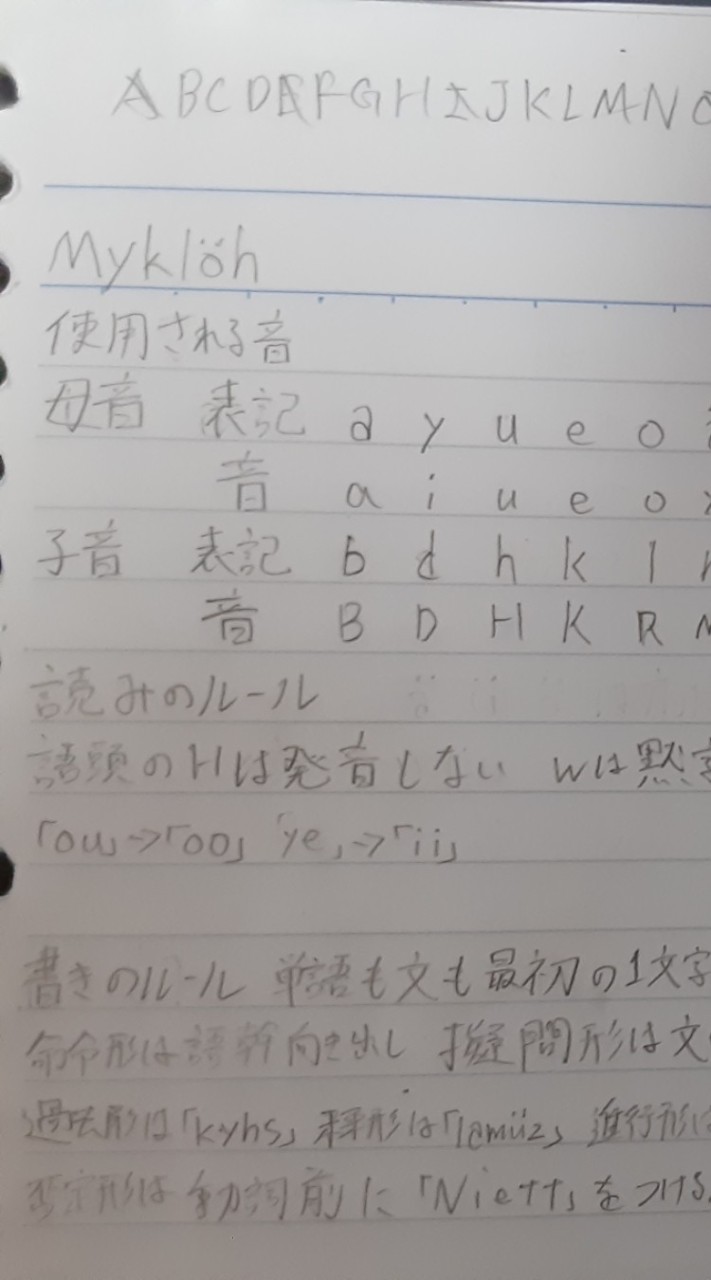 ABCDEFGHIJKLMN
Myklöh
使用される音
母音 表記 a y u e o
音 a i u e o
子音 表記 b d h k l
音 B D H K R
読みのルール
語頭のHは発音しない wは黙字
「ou」->「oo」 「ye」->「ii」
書きのルール 単語も文も最初の1文字
命令形は語幹向き出し 擬問形は文
過去形は「kyhs」 形は「lamüz」 進行形は
否定形は動詞前に「Niett」をつける